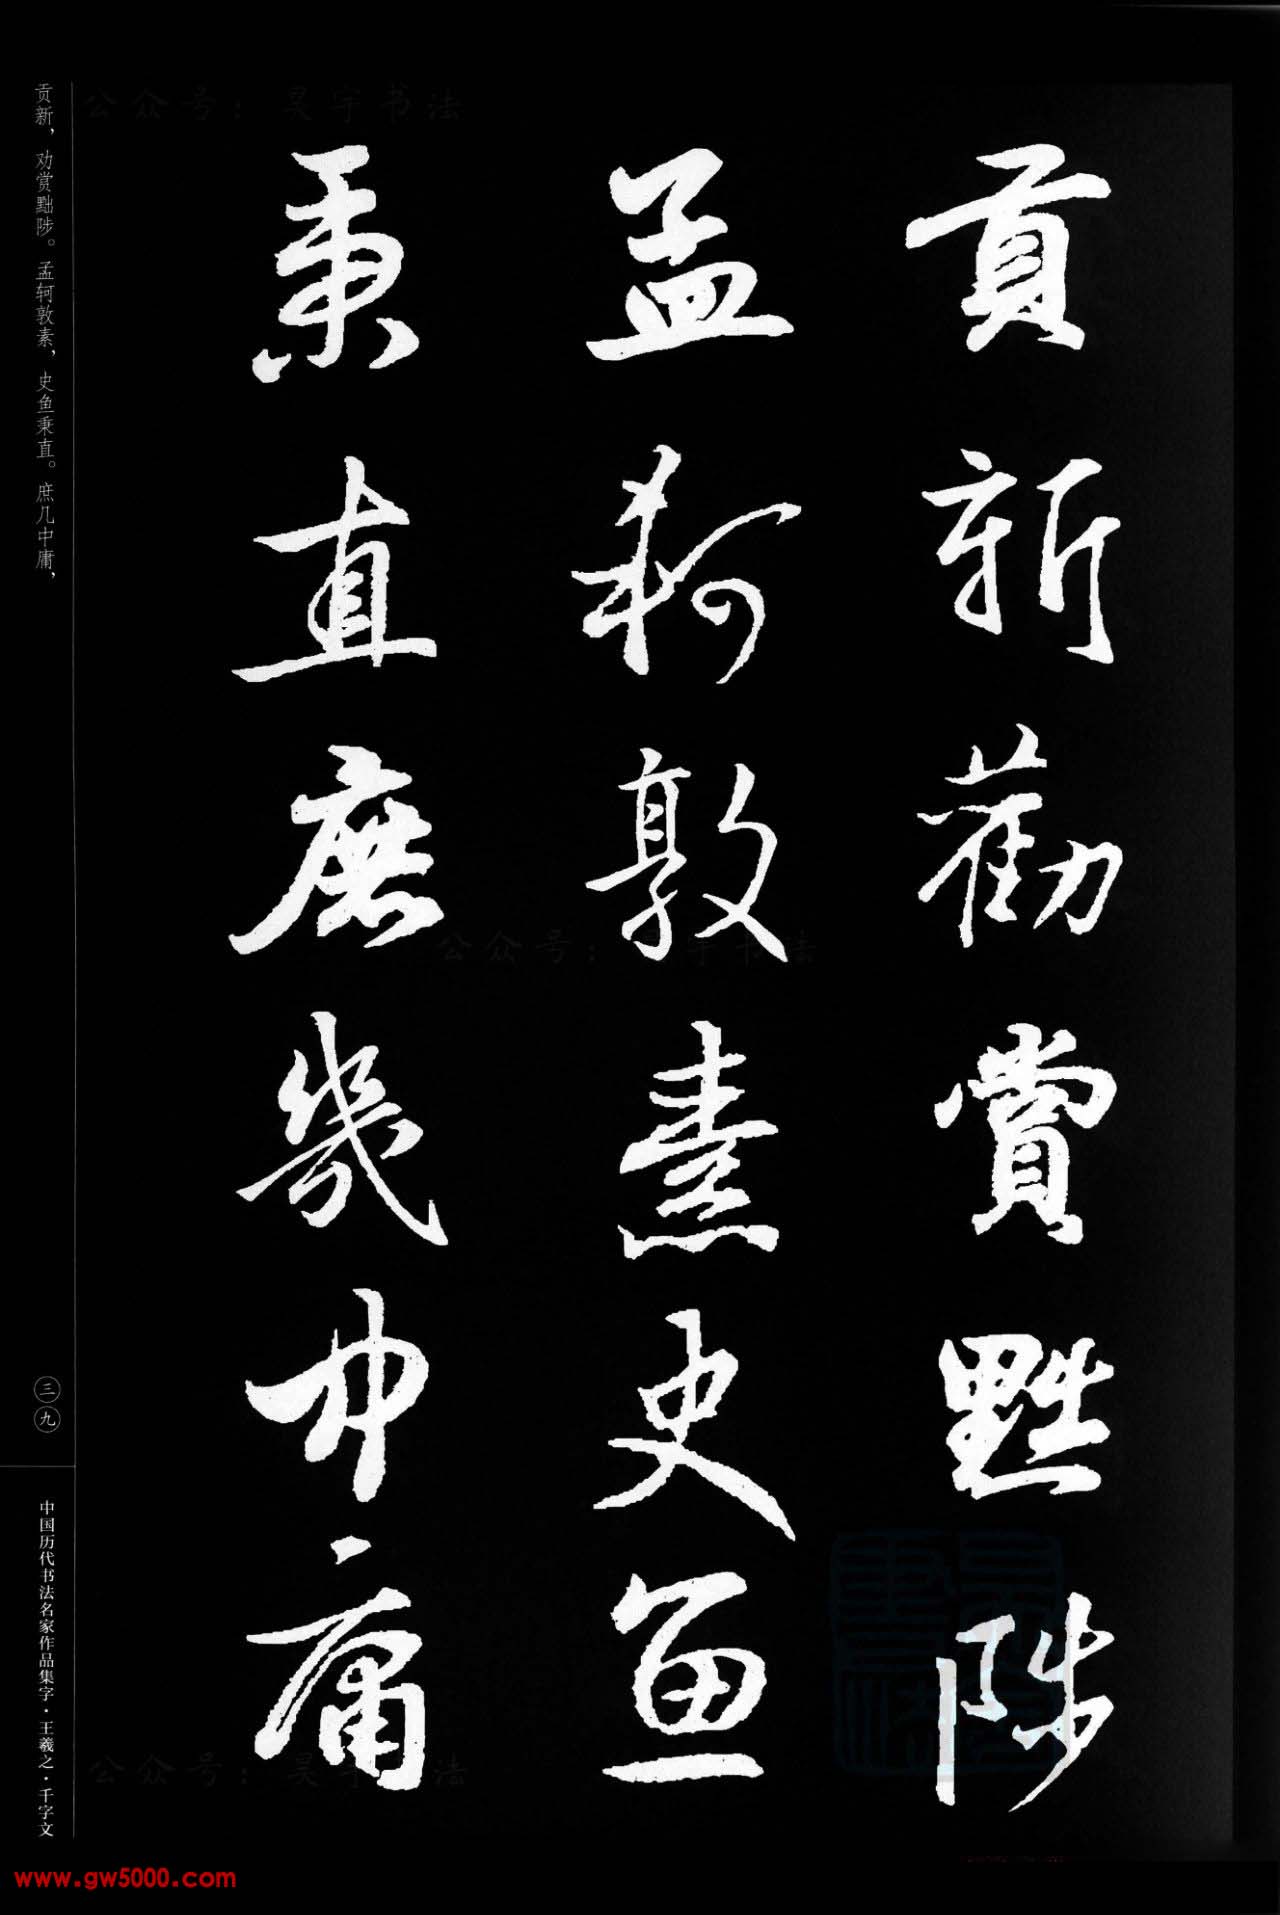 貢新勸賞黜陟
孟軻敦素史魚
秉直庶幾中庸
贡新，劝赏黜陟。孟轲敦素，史鱼秉直。庶几中庸，
三九
中国历代书法名家作品集字·王羲之·千字文
公众号：昊宇书法
公众号：昊宇书法
公众号：昊宇书法
www.gw5000.com